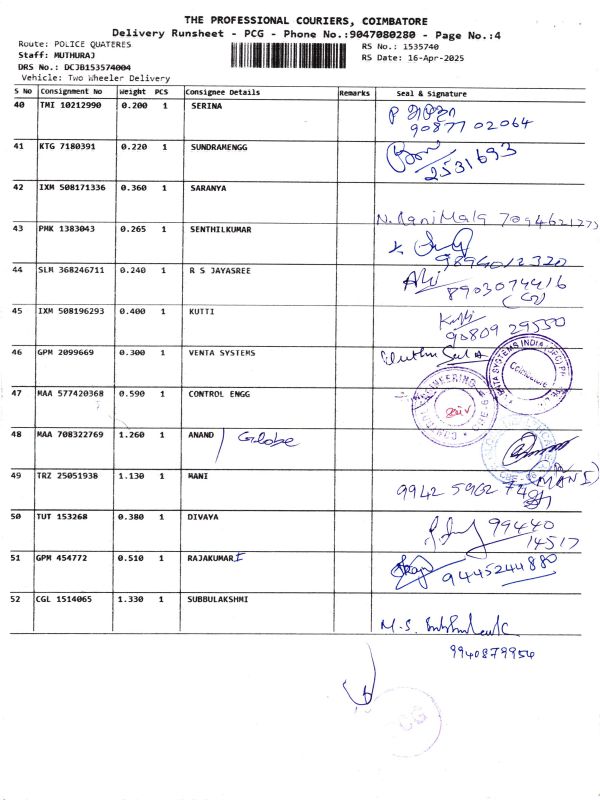 THE PROFESSIONAL COURIERS, COIMBATORE
Delivery Runsheet - PCG - Phone No.:9047080280 - Page No.:4
Route: POLICE QUATERES
RS No.: 1535740
Staff: MUTHURAJ
RS Date: 16-Apr-2025
DRS No.: DCJB153574004
Vehicle: Two Wheeler Delivery
S No Consignment No Weight PCS Consignee Details Remarks Seal & Signature
40 TMI 10212990 0.200 1 SERINA
90877 02064
41 KTG 7180391 0.220 1 SUNDRAMENGG
2531693
42 IXM 508171336 0.360 1 SARANYA
N. Rani Mala 7094621273
43 PMK 1383043 0.265 1 SENTHILKUMAR
9894012320
44 SLM 368246711 0.240 1 R S JAYASREE
8903074416
45 IXM 508196293 0.400 1 KUTTI
90809 29550
46 GPM 2099669 0.300 1 VENTA SYSTEMS
VENTA SYSTEMS INDIA (OPC)
Coimbatore
47 MAA 577420368 0.590 1 CONTROL ENGG
48 MAA 708322769 1.260 1 ANAND Globe
49 TRZ 25051938 1.130 1 MANI
(MANI)
9942 5962 74
50 TUT 153268 0.380 1 DIVAYA
99440
14517
51 GPM 454772 0.510 1 RAJAKUMARI
9445244880
52 CGL 1514065 1.330 1 SUBBULAKSHMI
M.S.
9940879954